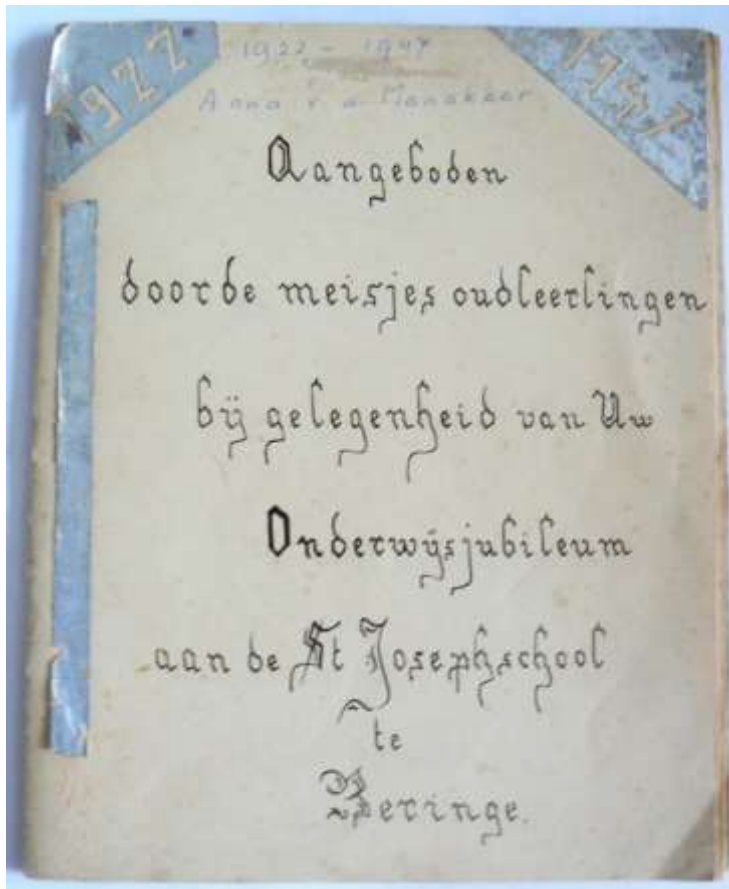 1922
1947
1922 - 1947
Anna v d Manakker
Aangeboden
door de meisjes oudleerlingen
bij gelegenheid van Uw
Onderwijsjubileum
aan de St Josephschool
te
Beringe.